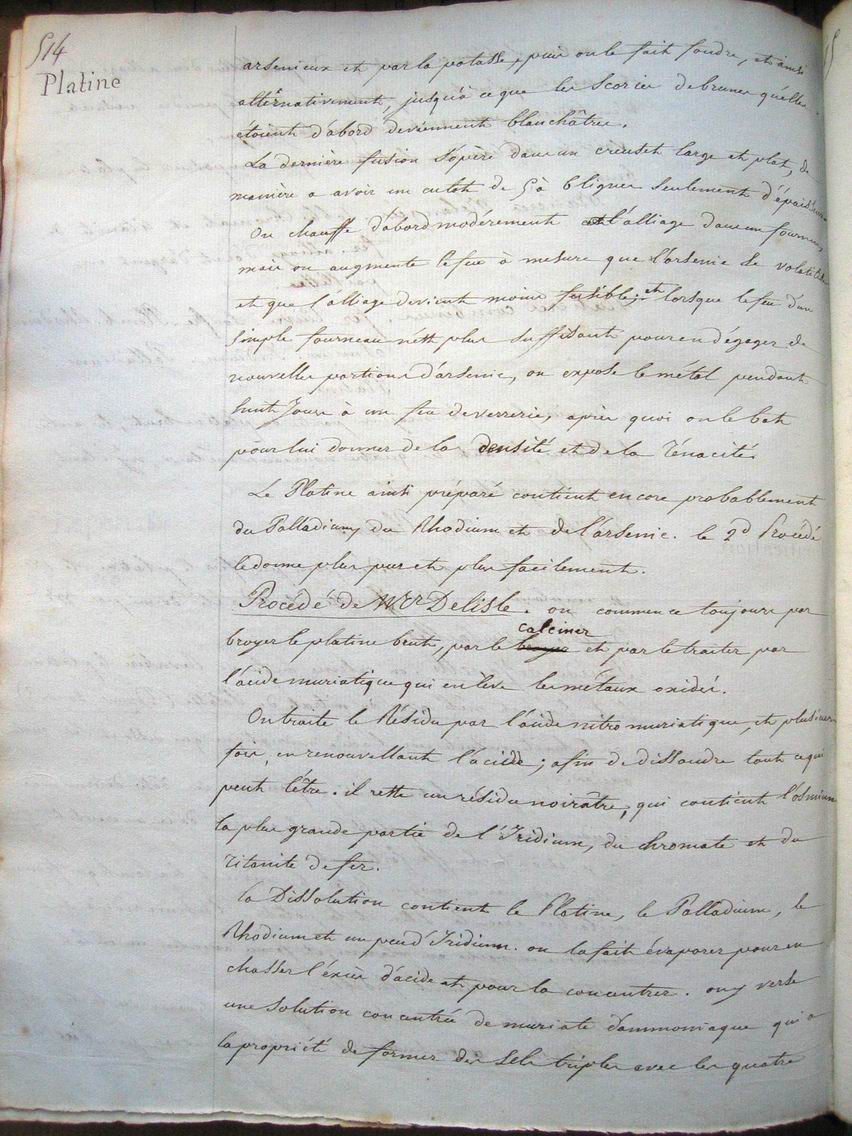 514
Platine
arsenieux et par la potasse, puis on le fait fondre, et ainsi
alternativement, jusqu'à ce que les scories de brunes qu'elles
étoient d'abord deviennent blanchâtres.
La dernière fusion s'opère dans un creuset large et plat, de
manière a avoir un culot de 5 à 6 lignes seulement d'épaisseur
On chauffe d'abord modérément l'alliage dans un fourneau,
mais on augmente le feu à mesure que l'arsenic se volatilise
et que l'alliage devient moins fusible; et lorsque le feu d'un
simple fourneau n'est plus suffisant pour en dégager de
nouvelles portions d'arsenic, on expose le métal pendant
huit Jours à un feu de verrerie, après quoi on le bat
pour lui donner de la densité et de la Ténacité.
Le Platine ainsi préparé contient encore probablement
du Palladium, du Rhodium et de l'arsenic. le 2d Procédé
le donne plus pur et plus facilement.
Procédé de Mr Delisle. on commence toujours par
broyer le platine brut, par le calciner et par le traiter par
l'acide muriatique qui enleve les métaux oxidés.
On traite le Résidu par l'acide nitro muriatique, et plusieurs
fois, en renouvellant l'acide; afin de dissoudre tout ce qui
peut l'être. il reste un résidu noirâtre, qui contient l'osmium
la plus grande partie de l'Iridium, du chromate et du
Titanite de fer.
la Dissolution contient le Platine, le Palladium, le
Rhodium et un peu d'Iridium. on la fait évaporer pour en
chasser l'éxcès d'acide et pour la concentrer. on y verse
une solution concentrée de muriate d'ammoniaque qui a
la propriété de former des sels triples avec les quatre